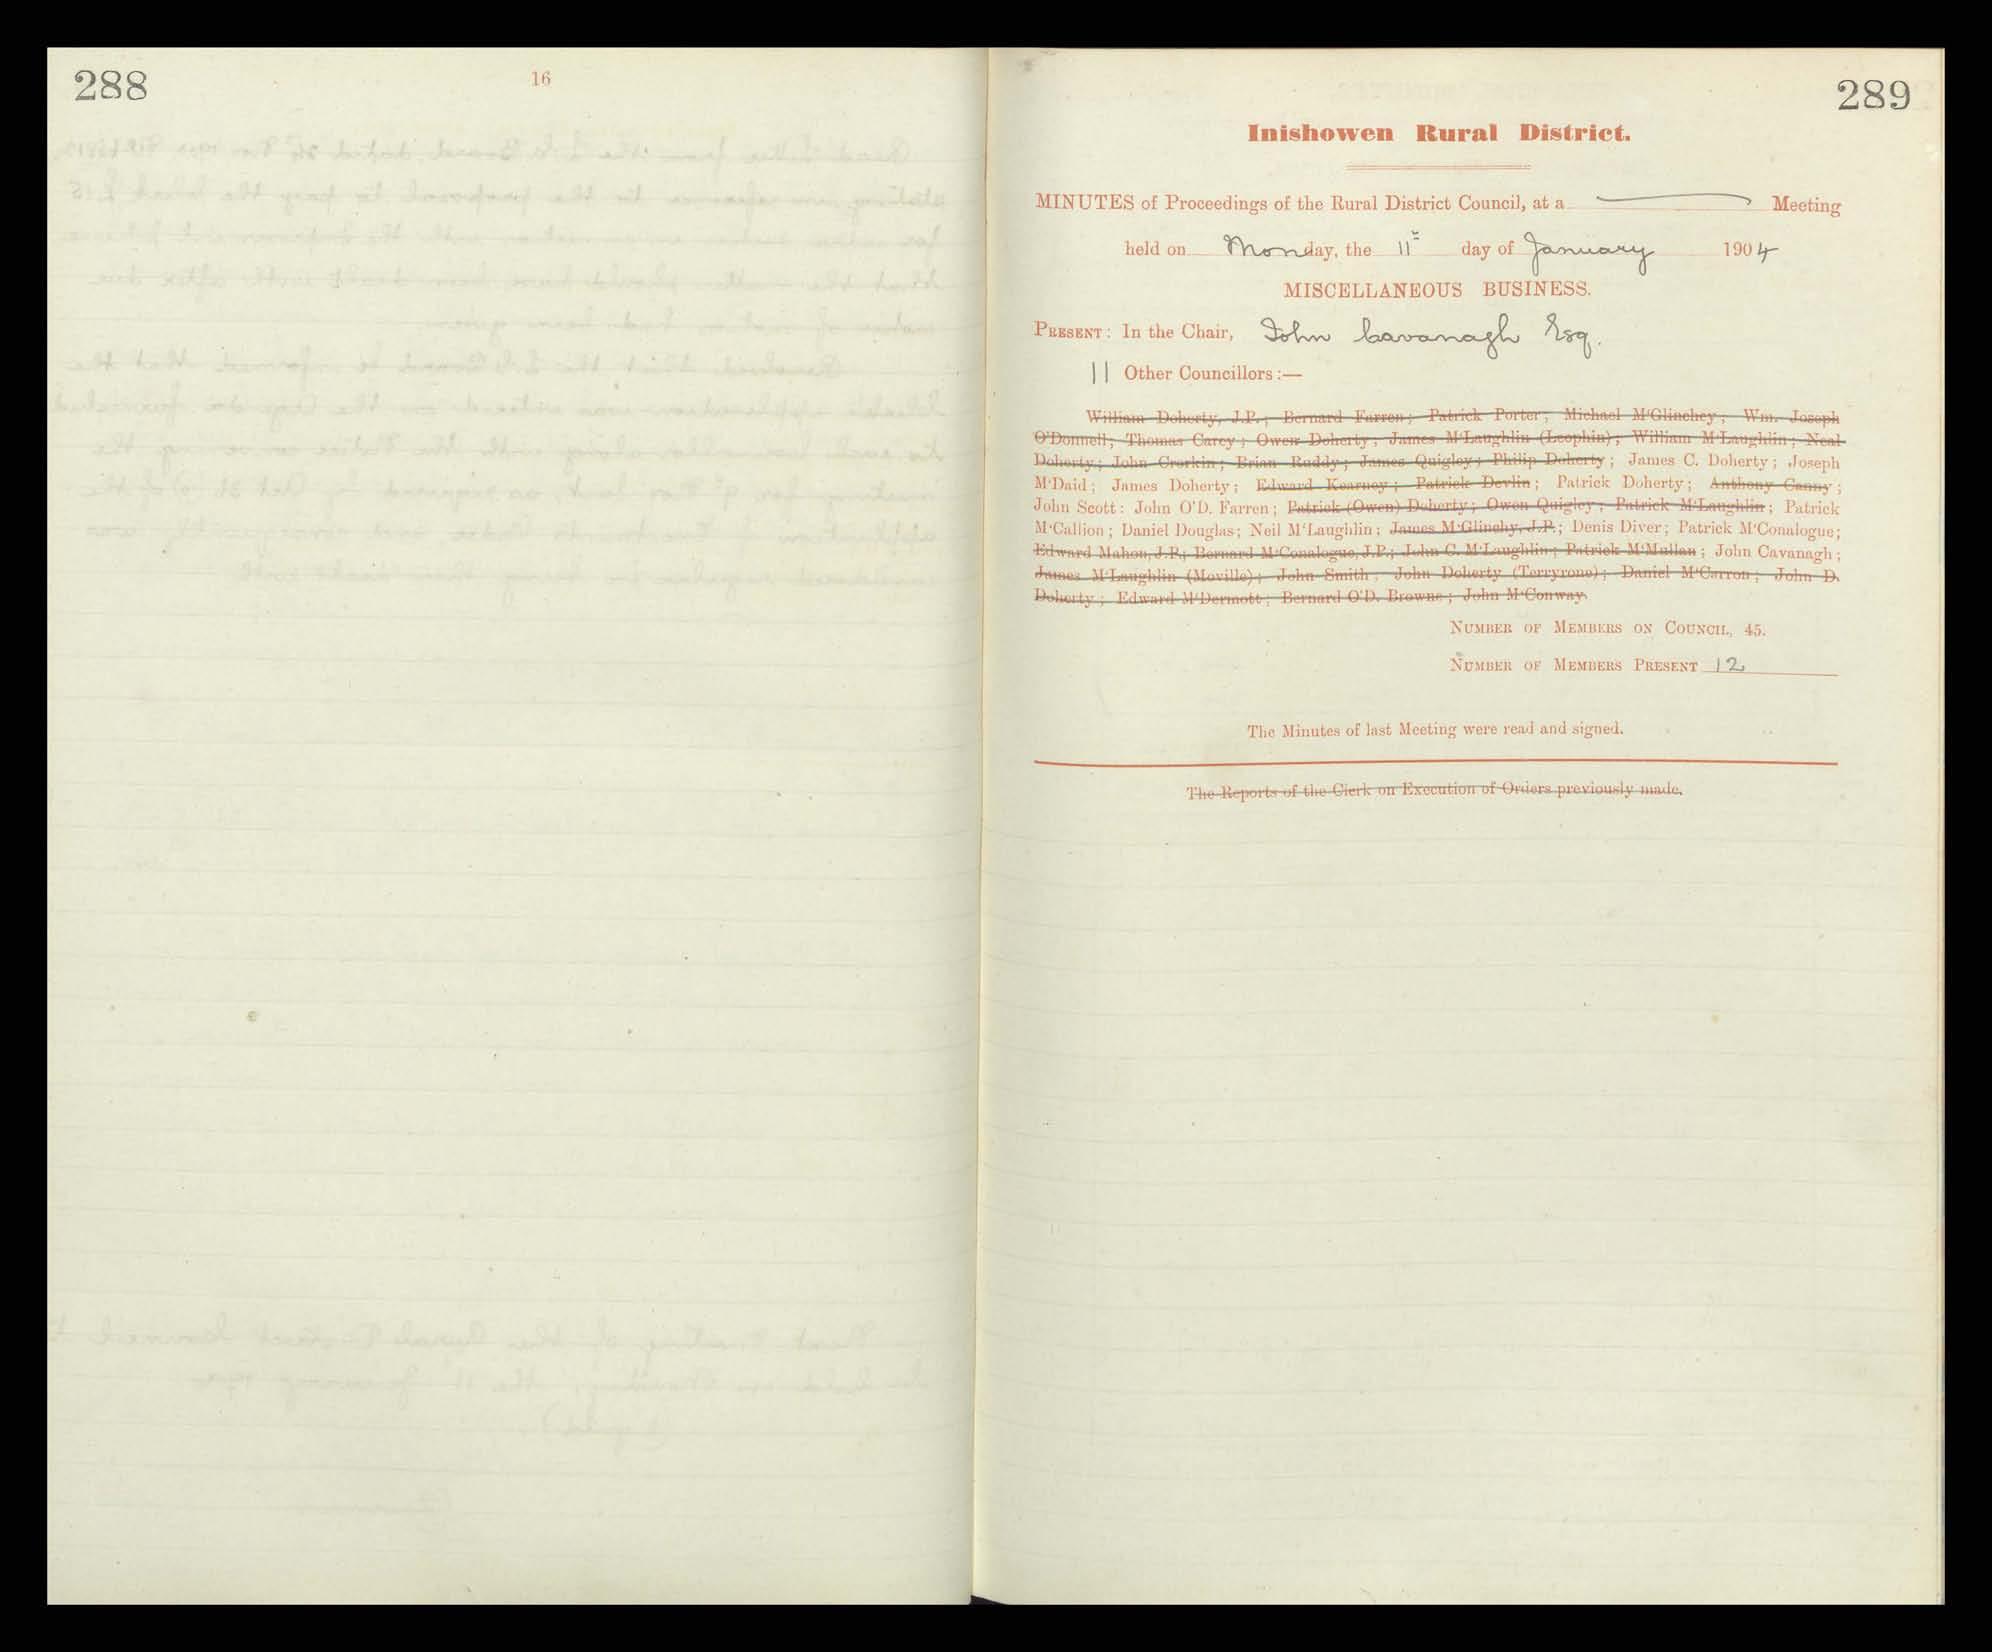 288
16
289
Inishowen Rural District.
MINUTES of Proceedings of the Rural District Council, at a Meeting
held on Monday, the 11th day of January 1904
MISCELLANEOUS BUSINESS.
PRESENT: In the Chair, John Cavanagh Esq.
11 Other Councillors:—
William Doherty, J.P.; Bernard Farren; Patrick Porter; Michael M'Glinchey; Wm. Joseph
O'Donnell; Thomas Carey; Owen Doherty; James M'Laughlin (Leophin); William M'Laughlin; Neal
Doherty; John Crorkin; Brian Ruddy; James Quigley; Philip Doherty; James C. Doherty; Joseph
M'Daid; James Doherty; Edward Kearney; Patrick Devlin; Patrick Doherty; Anthony Canny;
John Scott: John O'D. Farren; Patrick (Owen) Doherty; Owen Quigley; Patrick M'Laughlin; Patrick
M'Callion; Daniel Douglas; Neil M'Laughlin; James M'Glinchy, J.P.; Denis Diver; Patrick M'Conalogue;
Edward Mahon, J.P.; Bernard M'Conalogue, J.P.; John C. M'Laughlin; Patrick M'Mullan; John Cavanagh;
James M'Laughlin (Moville); John Smith; John Doherty (Terryrone); Daniel M'Carron; John D.
Doherty; Edward M'Dermott; Bernard O'D. Browne; John M'Conway.
NUMBER OF MEMBERS ON COUNCIL, 45.
NUMBER OF MEMBERS PRESENT 12
The Minutes of last Meeting were read and signed.
The Reports of the Clerk on Execution of Orders previously made.